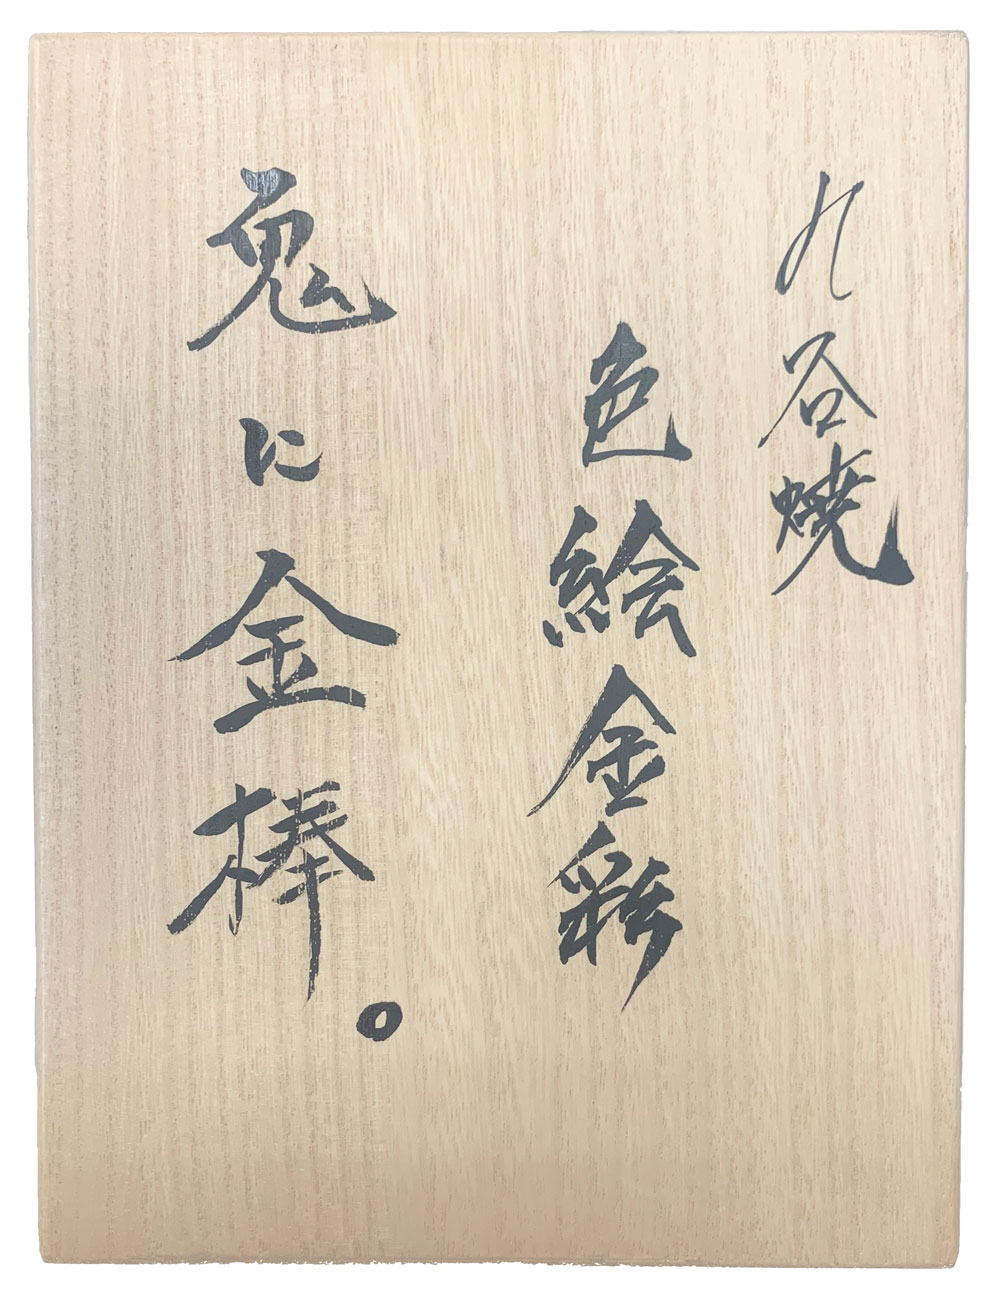 九谷焼
色絵金彩
鬼に金棒。